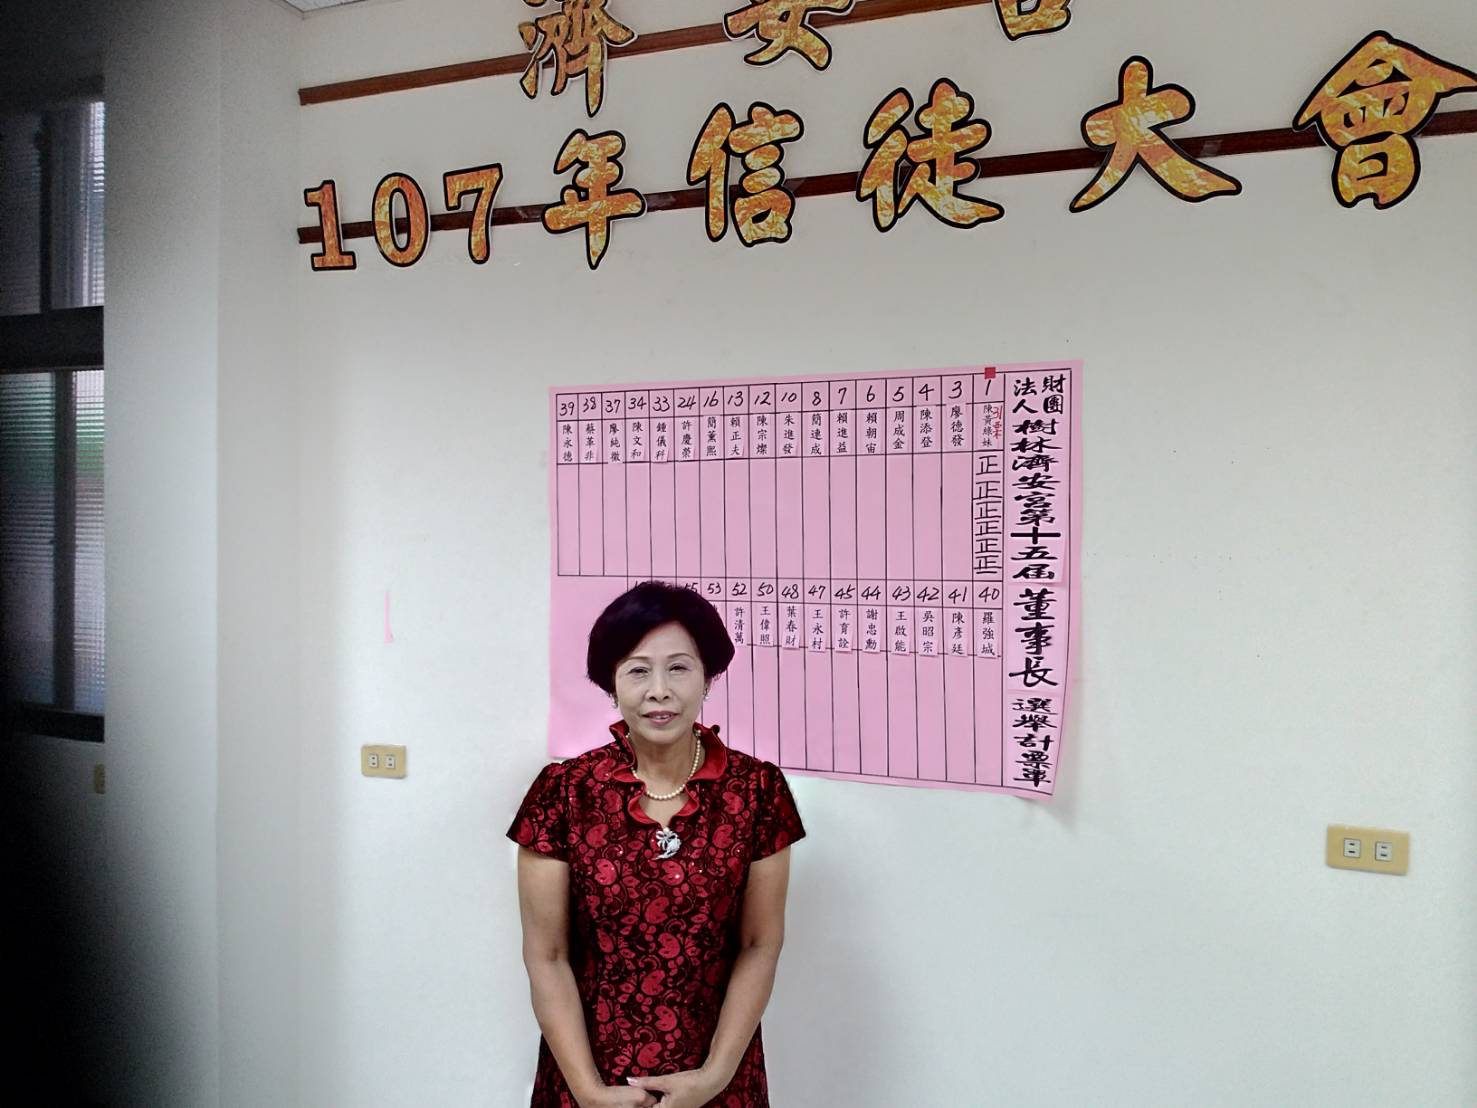 濟安宮
107年信徒大會
財團法人樹林濟安宮第十五屆董事長選舉計票單
1 陳黃綠妹 31票
正正正正正正
3 廖德發
4 陳添登
5 周成金
6 賴朝宙
7 賴進益
8 簡連成
10 朱進發
12 陳宗燦
13 賴正夫
16 簡薰熙
24 許慶榮
33 鍾儀科
34 陳文和
37 廖純徽
38 蔡革非
39 陳永德
40 羅強城
41 陳彥廷
42 吳昭宗
43 王啟能
44 謝忠勳
45 許育詮
47 王永村
48 葉春財
50 王偉照
52 許清萬
53
55